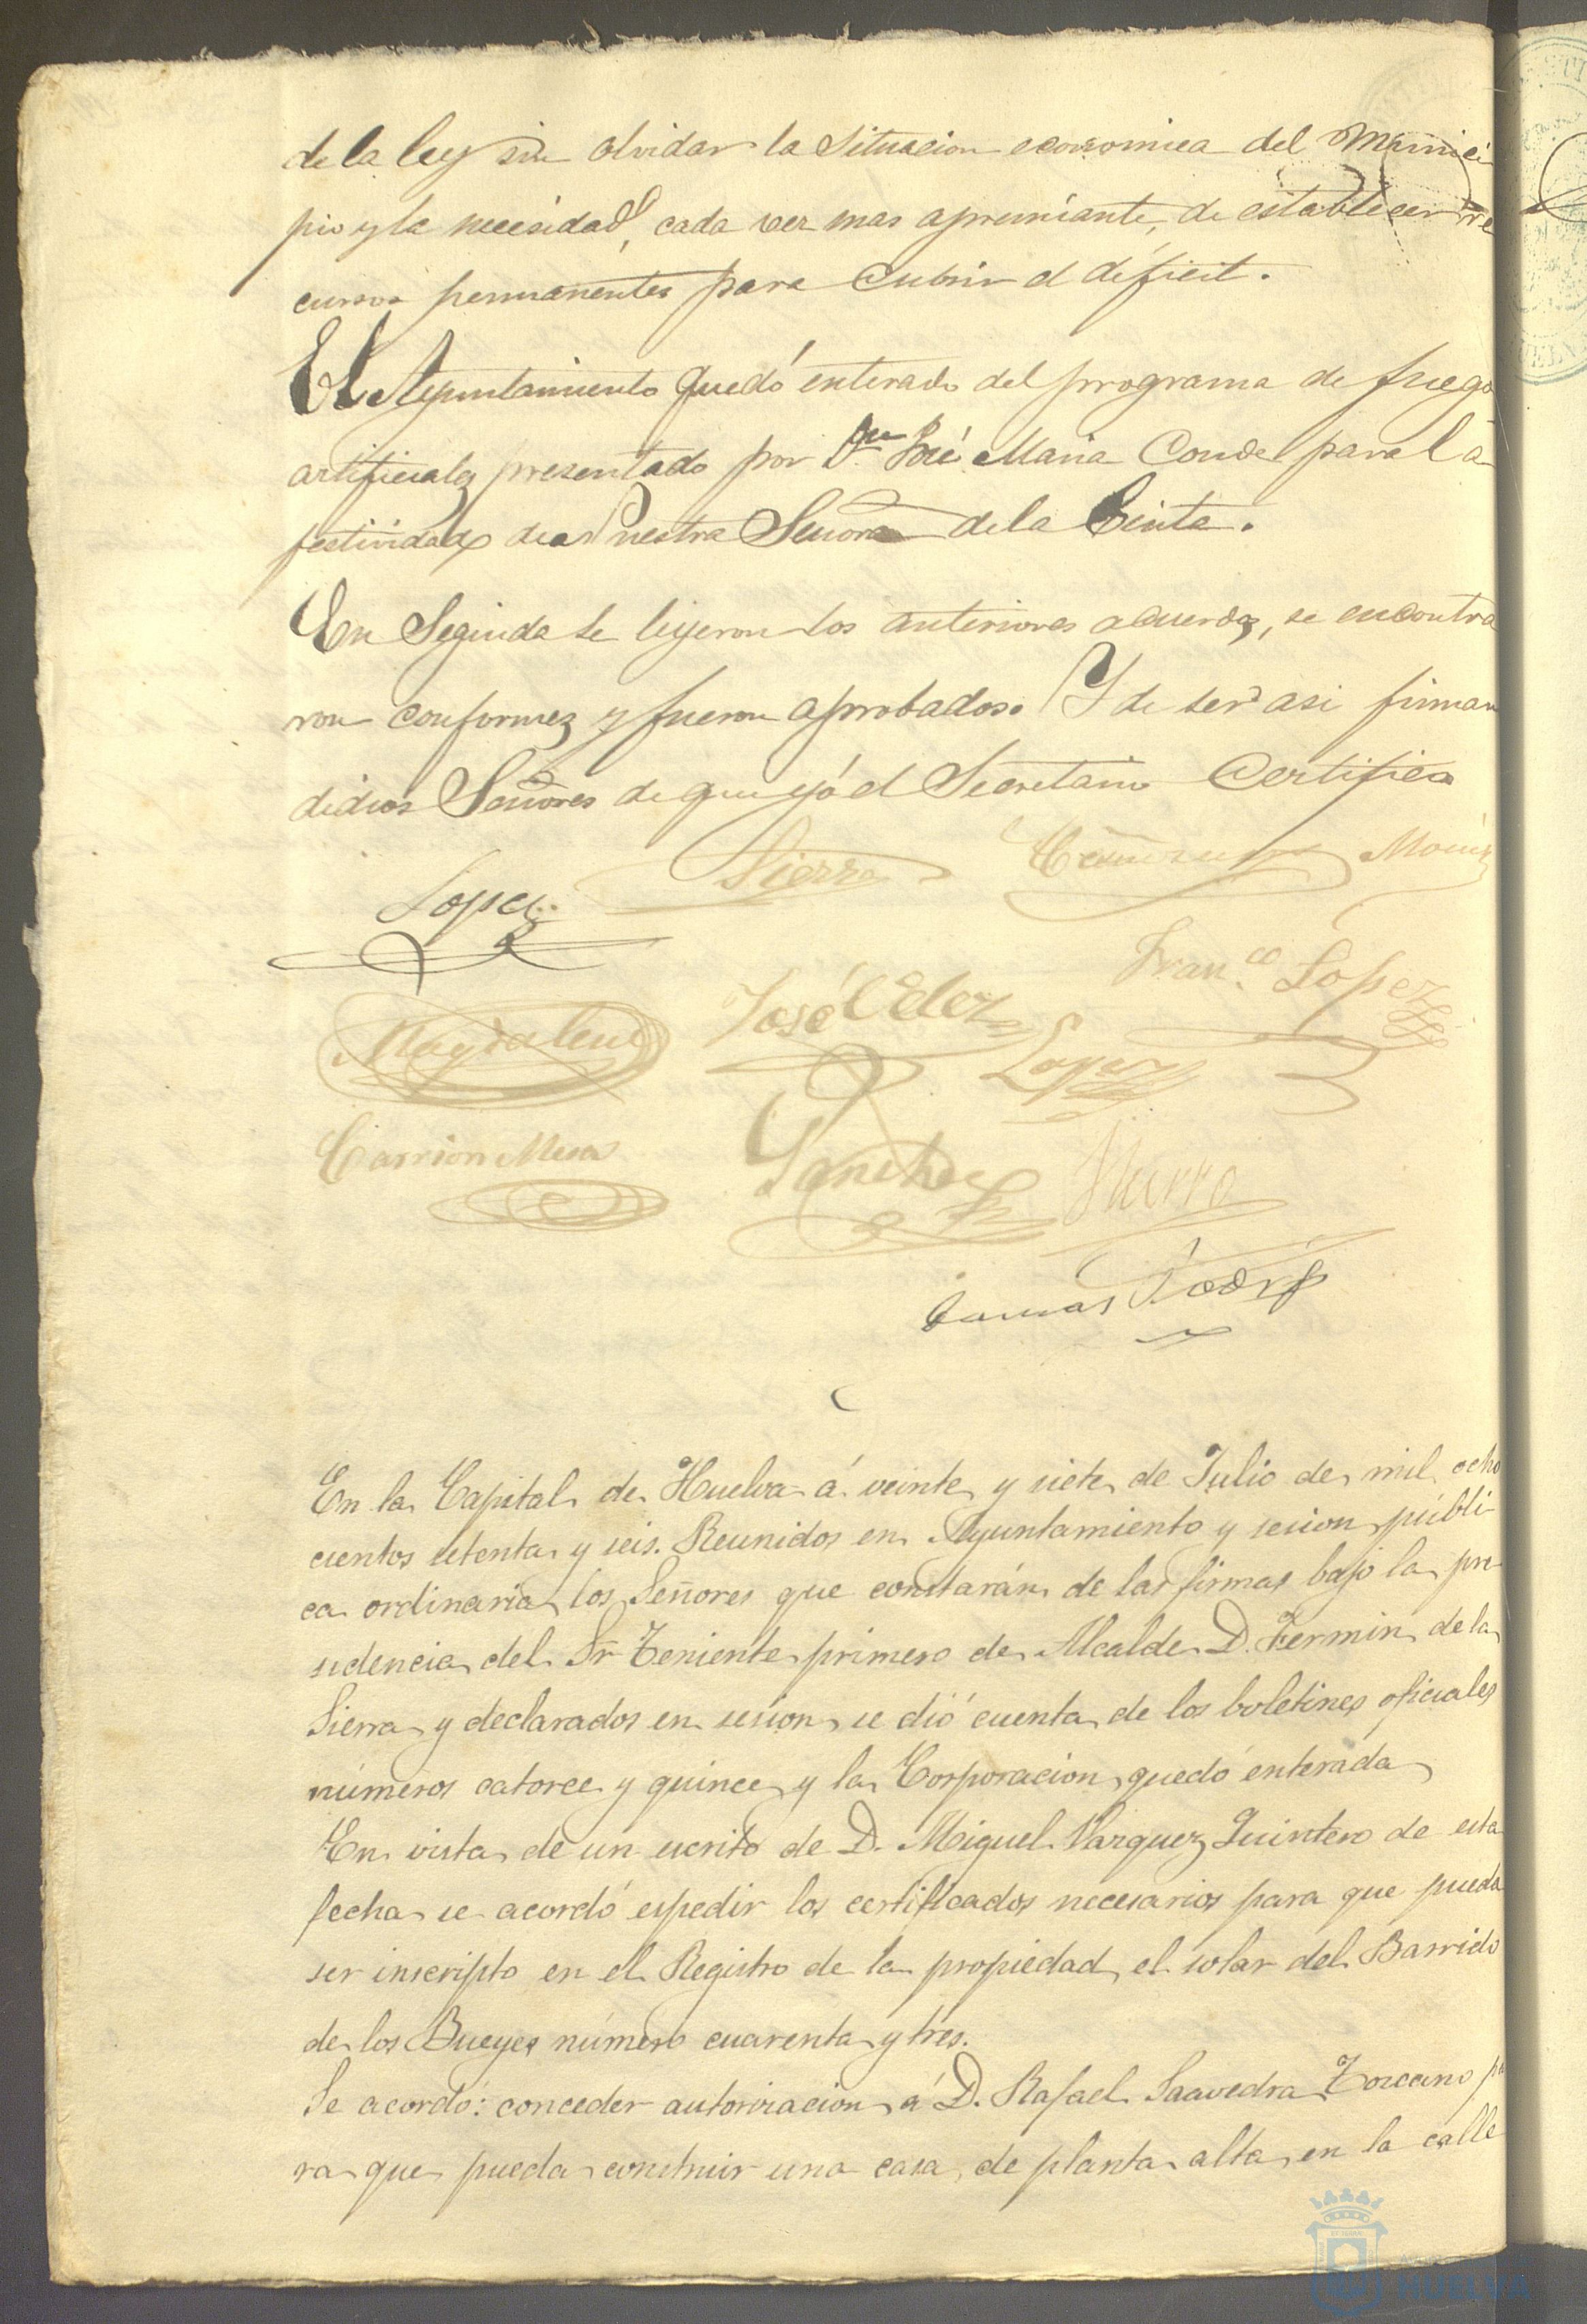 de la ley sin olvidar la situacion economica del Munici
pio y la necesidad, cada vez mas apremiante, de establecer re
cursos permanentes para cubrir el déficit.
El Ayuntamiento quedó enterado del programa de fuegos
artificiales presentado por Dn José Maria Conde para la
festividad de Nuestra Señora de la Cinta.
En Seguida se leyeron los anteriores acuerdos, se encontra
ron conformes y fueron aprobados. Y de ser asi firman
dichos Señores de que yó el Secretario Certifico
Lopez Sierra
José Velez Franco Lopez
Magdalena Lopez
Carrion Mesa Sanchez
Tomas Rodrz
En la Capital de Huelva á veinte y siete de Julio de mil ocho
cientos setenta y seis. Reunidos en Ayuntamiento y sesion públi-
ca ordinaria los Señores que constarán de las firmas bajo la pre-
sidencia del Sr Teniente primero de Alcalde D. Fermin de la
Sierra y declarados en sesion, se dió cuenta de los boletines oficiales
números catorce y quince y la Corporacion quedó enterada
En vista de un escrito de D. Miguel Vazquez Quintero de esta
fecha se acordó espedir los certificados necesarios para que pueda
ser inscripto en el Registro de la propiedad el solar del Barrido
de los Bueyes número cuarenta y tres.
Se acordó: conceder autorizacion á D. Rafael Saavedra Toscano pa
ra que pueda construir una casa de planta alta en la calle
HUELVA